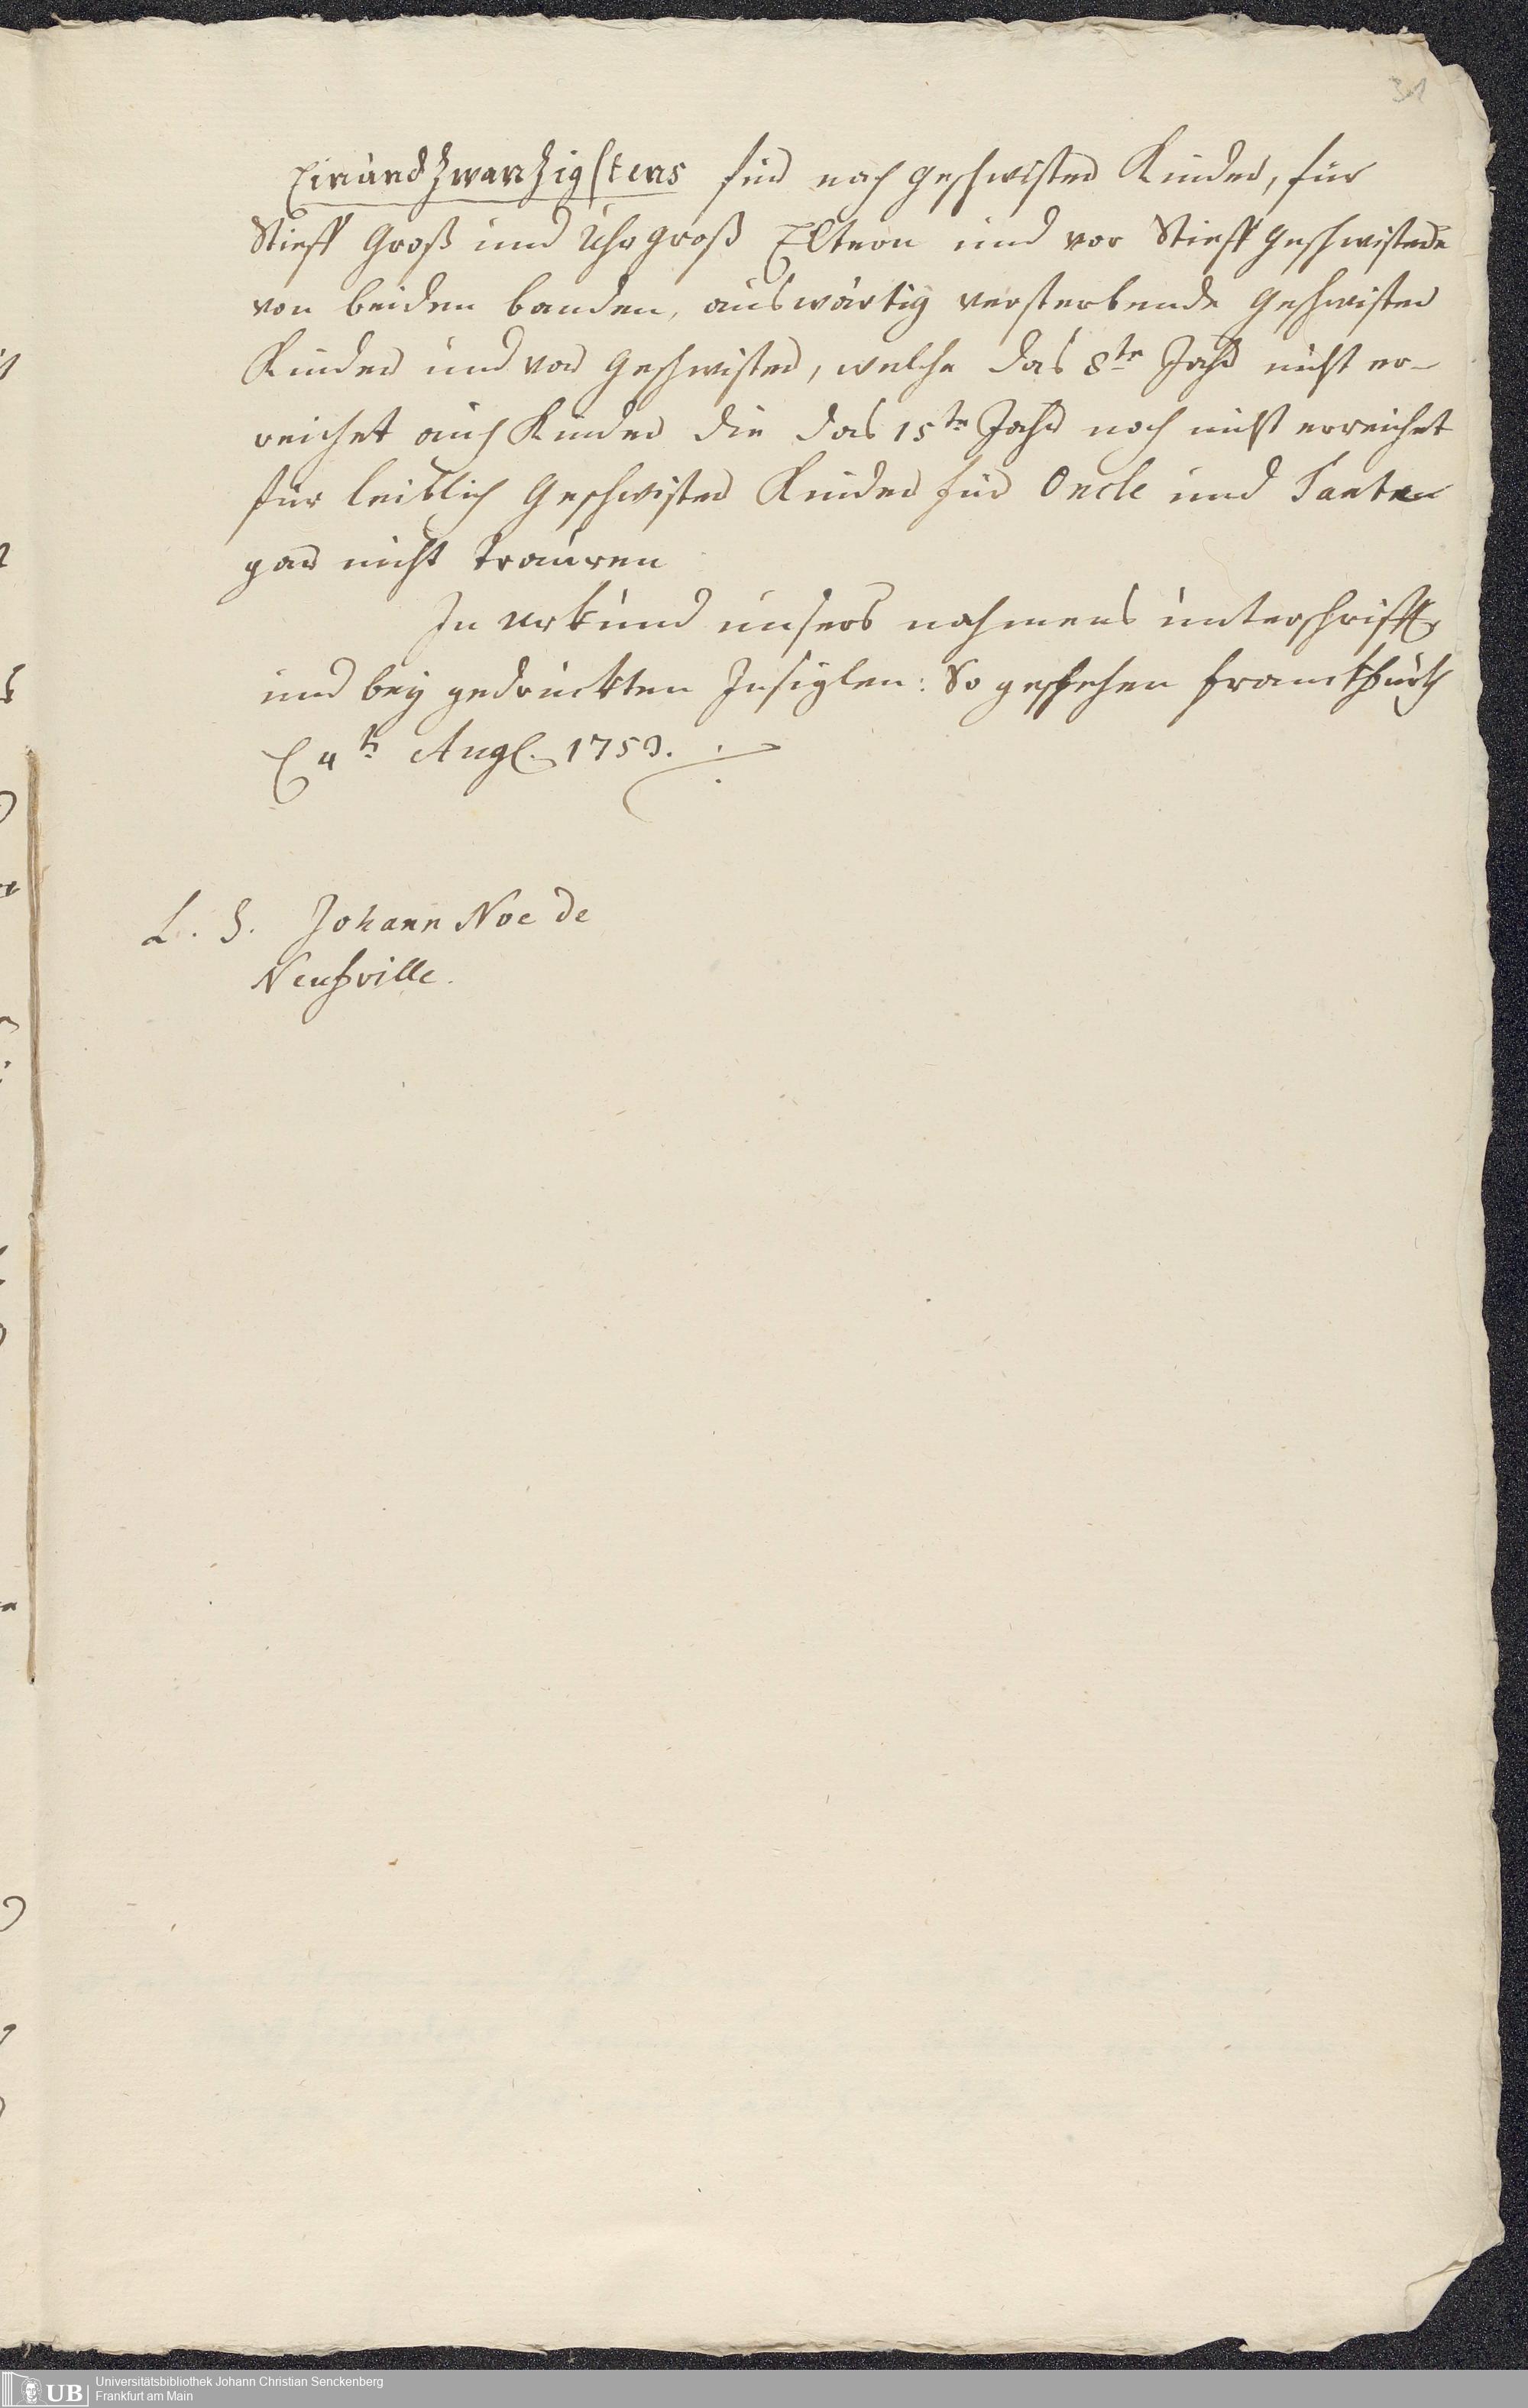 31
Einundzwanzigstens für nach geschwister Kinder, für
Stieff Groß und Uhrgroß Eltern und vor Stieff geschwistere
von beiden banden, auswärtig versterbende geschwister
Kinder und vor geschwister, welche das 8te Jahr nicht er-
reichet auch Kinder die das 15te Jahr noch nicht erreichet
für leiblich Geschwister Kinder für Oncle und Tanten
gar nicht trauren
In urkund unsers nahmens unterschrifft,
und bey gedruckten Insiglen: So geschehen franckfurth
4t Aug. 1753.
L. S. Johann Noe de
Neufville.
UB Universitätsbibliothek Johann Christian Senckenberg
Frankfurt am Main